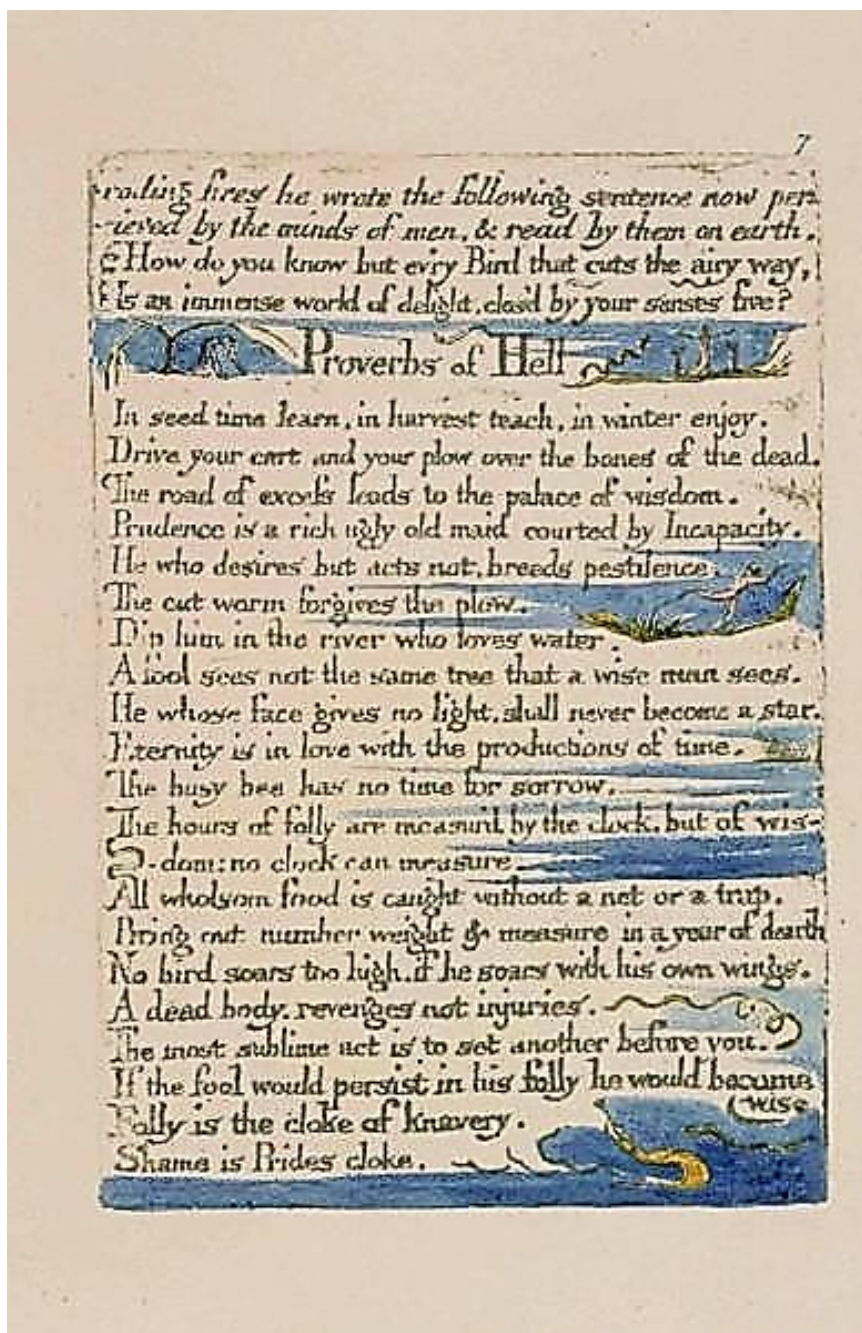 7
roding fires he wrote the following sentence now per
cieved by the minds of men, & read by them on earth.
How do you know but ev'ry Bird that cuts the airy way,
Is an immense world of delight, clos'd by your senses five?
Proverbs of Hell
In seed time learn, in harvest teach, in winter enjoy.
Drive your cart and your plow over the bones of the dead.
The road of excess leads to the palace of wisdom.
Prudence is a rich ugly old maid courted by Incapacity.
He who desires but acts not, breeds pestilence.
The cut worm forgives the plow.
Dip him in the river who loves water.
A fool sees not the same tree that a wise man sees.
He whose face gives no light, shall never become a star.
Eternity is in love with the productions of time.
The busy bee has no time for sorrow.
The hours of folly are measur'd by the clock, but of wis-
-dom: no clock can measure.
All wholsom food is caught without a net or a trap.
Bring out number weight & measure in a year of dearth
No bird soars too high, if he soars with his own wings.
A dead body, revenges not injuries.
The most sublime act is to set another before you.
If the fool would persist in his folly he would become
(wise
Folly is the cloke of knavery.
Shame is Prides cloke.